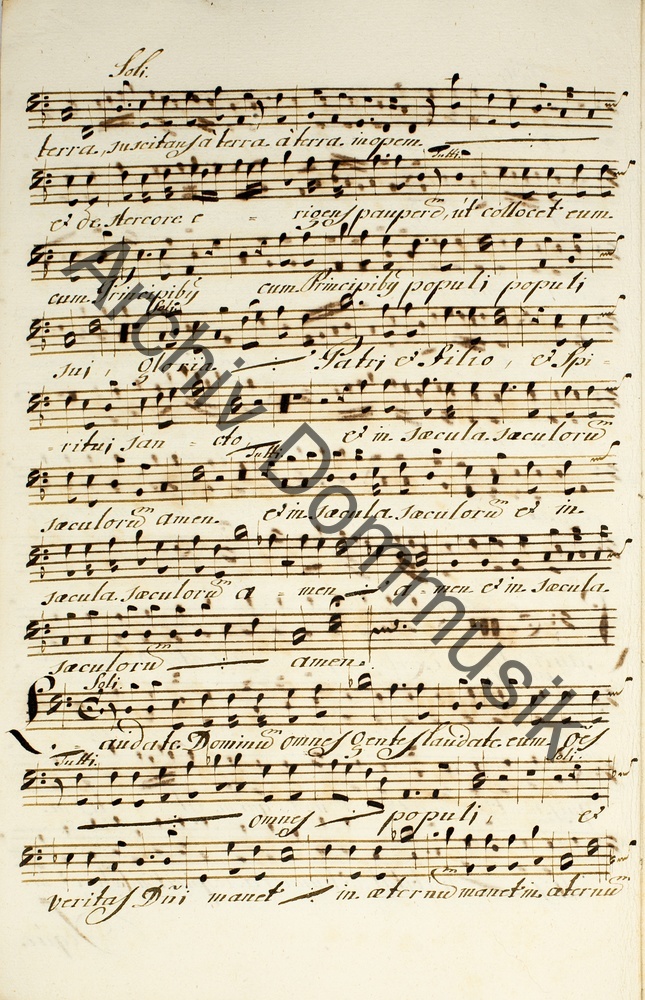 Soli.
terra, suscitans à terra à terra inopem.
Tutti.
et de stercore e - rigens pauperẽ, ut collocet eum.
cum Principibꝰ cum Principibꝰ populi populi
Soli.
sui, gloria Patri et Filio, et Spi-
ritui san - cto, et in sæcula sæculorũ
Tutti.
sæculorũ amen. et in sæcula sæculorũ et in
sæcula sæculorũ a - men a - men et in sæcula
sæculorũ amen.
Soli.
Laudate Dominũ omnes gentes laudate eum oẽs
Tutti. Soli.
omnes populi, et
veritas Dñi manet in æternũ manet in æternũ
Archiv Dommusik